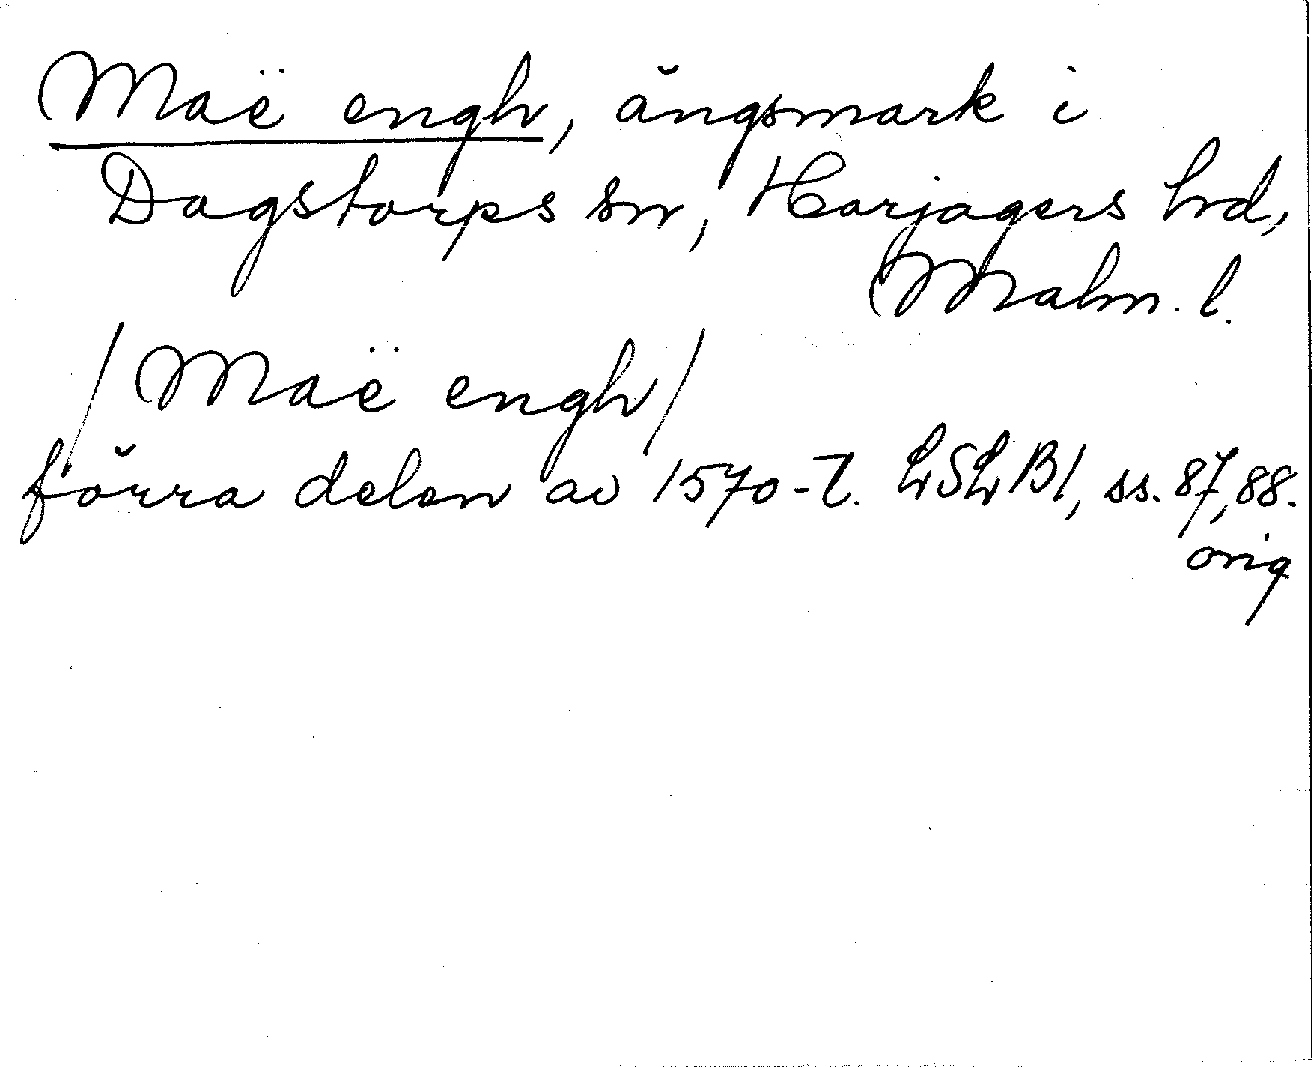 Maë engh, ängsmark i
Dagstorps sn, Harjagers hrd,
Malm. l.
/Maë engh/
förra delen av 1570-t. LSLB1, ss. 87, 88.
orig